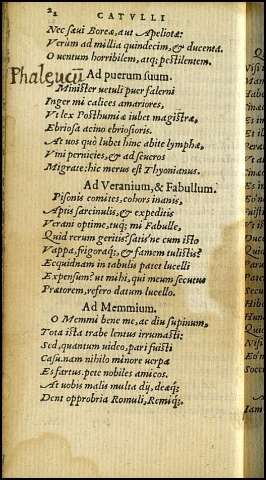 22
CATVLLI
Nec saeui Boreæ, aut Apeliotæ:
Verum ad millia quindecim, & ducenta.
O uentum horribilem, atq; pestilentem.
Phaleucij
Ad puerum suum.
Minister uetuli puer falerni
Inger mi calices amariores,
Vt lex Posthumiæ iubet magistræ,
Ebriosa acino ebriosioris.
At uos quò lubet hinc abite lymphæ,
Vini pernicies, & ad seueros
Migrate: hic merus est Thyonianus.
Ad Veranium, & Fabullum.
Pisonis comites, cohors inanis,
Aptis sarcinulis, & expeditis
Verani optime, tuq; mi Fabulle,
Quid rerum geritis? satis'ne cum isto
Vappa, frigoraq;, & famem tulistis?
Ecquidnam in tabulis patet lucelli
Expensum? ut mihi, qui meum secutus
Prætorem, refero datum lucello.
Ad Memmium.
O Memmi bene me, ac diu supinum,
Tota ista trabe lentus irrumasti:
Sed, quantum uideo, pari fuisti
Casu. nam nihilo minore uerpa
Es fartus. pete nobiles amicos.
At uobis mala multa dij, deæq;
Dent opprobria Romuli, Remiq;.